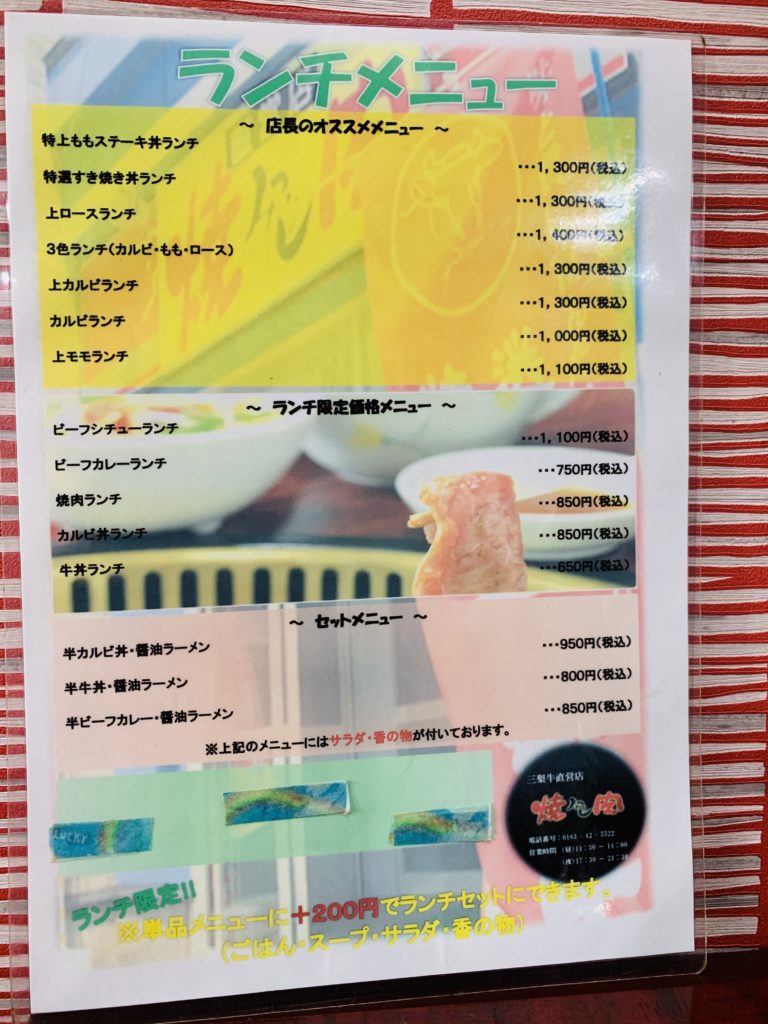 ランチメニュー
～ 店長のオススメメニュー ～
特上ももステーキ丼ランチ …1,300円(税込)
特選すき焼き丼ランチ …1,300円(税込)
上ロースランチ …1,400円(税込)
3色ランチ(カルビ・もも・ロース) …1,300円(税込)
上カルビランチ …1,300円(税込)
カルビランチ …1,000円(税込)
上モモランチ …1,100円(税込)
～ ランチ限定価格メニュー ～
ビーフシチューランチ …1,100円(税込)
ビーフカレーランチ …750円(税込)
焼肉ランチ …850円(税込)
カルビ丼ランチ …850円(税込)
牛丼ランチ …650円(税込)
～ セットメニュー ～
半カルビ丼・醤油ラーメン …950円(税込)
半牛丼・醤油ラーメン …800円(税込)
半ビーフカレー・醤油ラーメン …850円(税込)
※上記のメニューにはサラダ・香の物が付いております。
LUCKY
三梨牛直営店
焼 肉
電話番号：0183-42-5522
営業時間 (昼)11:30～14:00
(夜)17:30～21:30
ランチ限定!!
※単品メニューに＋200円でランチセットにできます。
(ごはん・スープ・サラダ・香の物)